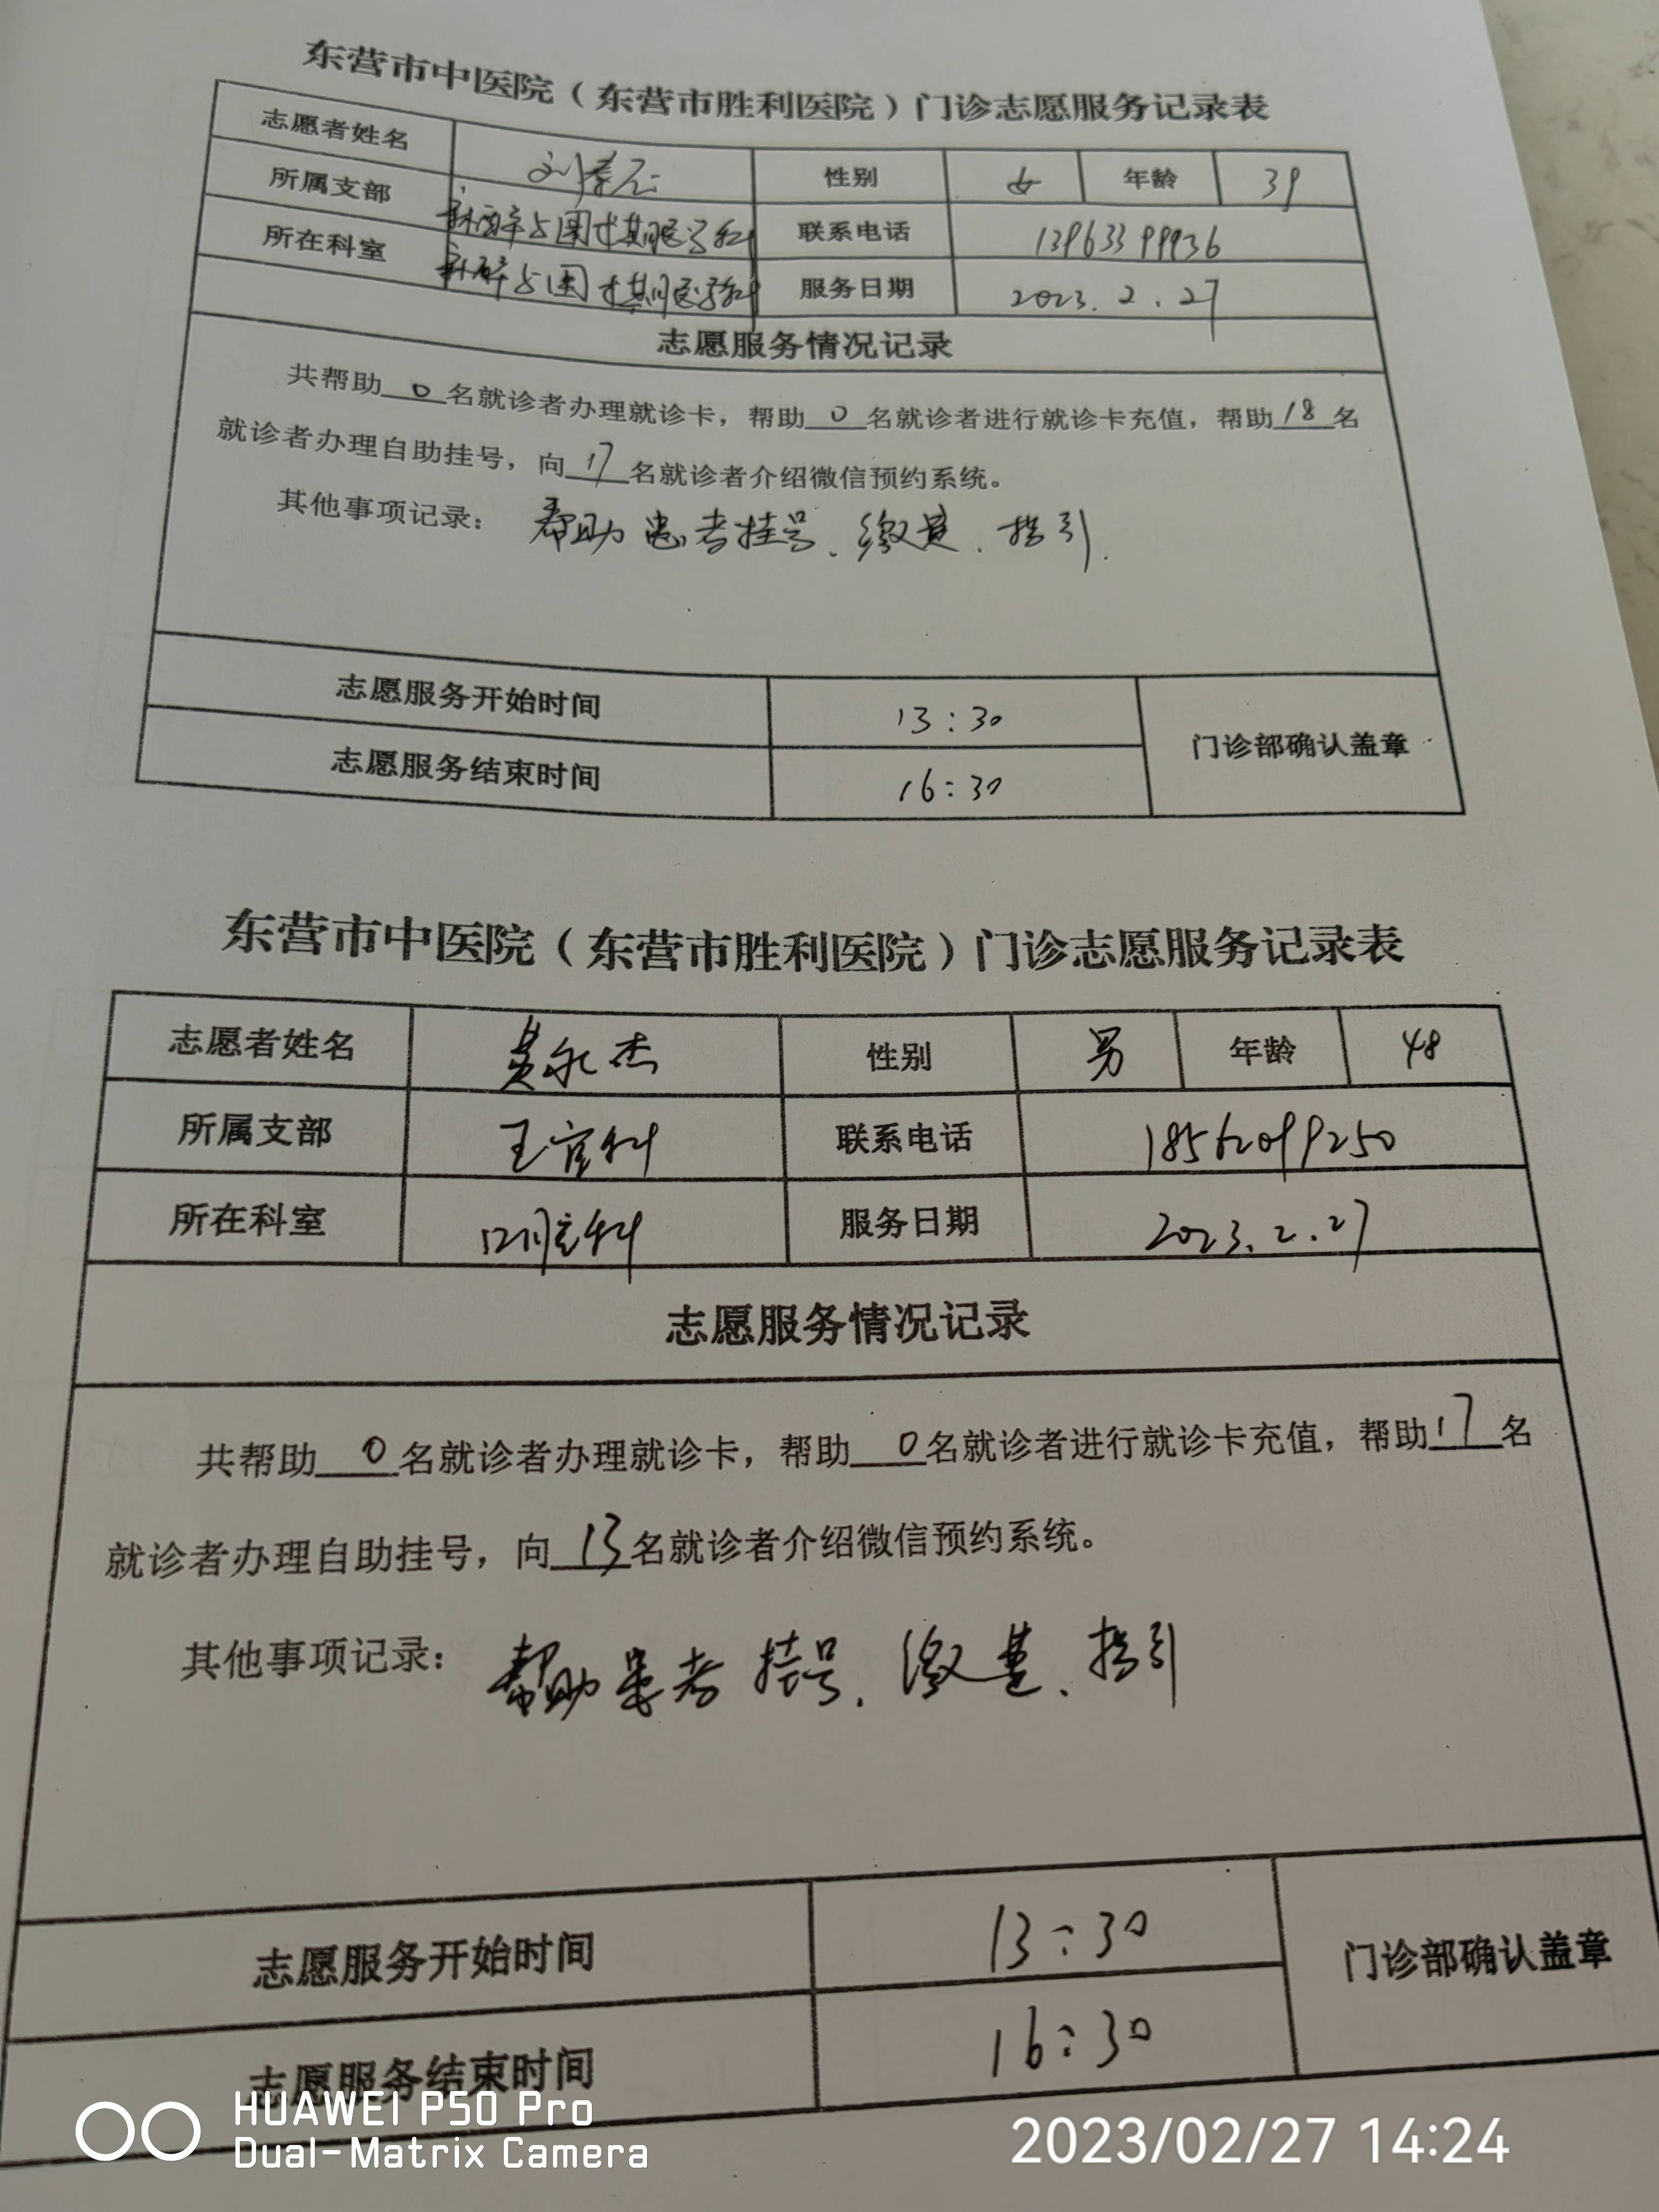 东营市中医院（东营市胜利医院）门诊志愿服务记录表
志愿者姓名 刘 性别 女 年龄 39
所属支部 联系电话 13963399936
所在科室 服务日期 2023.2.27
志愿服务情况记录
共帮助0名就诊者办理就诊卡，帮助0名就诊者进行就诊卡充值，帮助18名
就诊者办理自助挂号，向17名就诊者介绍微信预约系统。
其他事项记录：帮助患者挂号、缴费、指引.
志愿服务开始时间 13:30
门诊部确认盖章
志愿服务结束时间 16:30
东营市中医院（东营市胜利医院）门诊志愿服务记录表
志愿者姓名 黄永杰 性别 男 年龄 48
所属支部 五官科 联系电话 18562099250
所在科室 口腔科 服务日期 2023.2.27
志愿服务情况记录
共帮助0名就诊者办理就诊卡，帮助0名就诊者进行就诊卡充值，帮助17名
就诊者办理自助挂号，向13名就诊者介绍微信预约系统。
其他事项记录：帮助患者挂号、缴费、指引
志愿服务开始时间 13:30
门诊部确认盖章
志愿服务结束时间 16:30
HUAWEI P50 Pro
Dual-Matrix Camera
2023/02/27 14:24